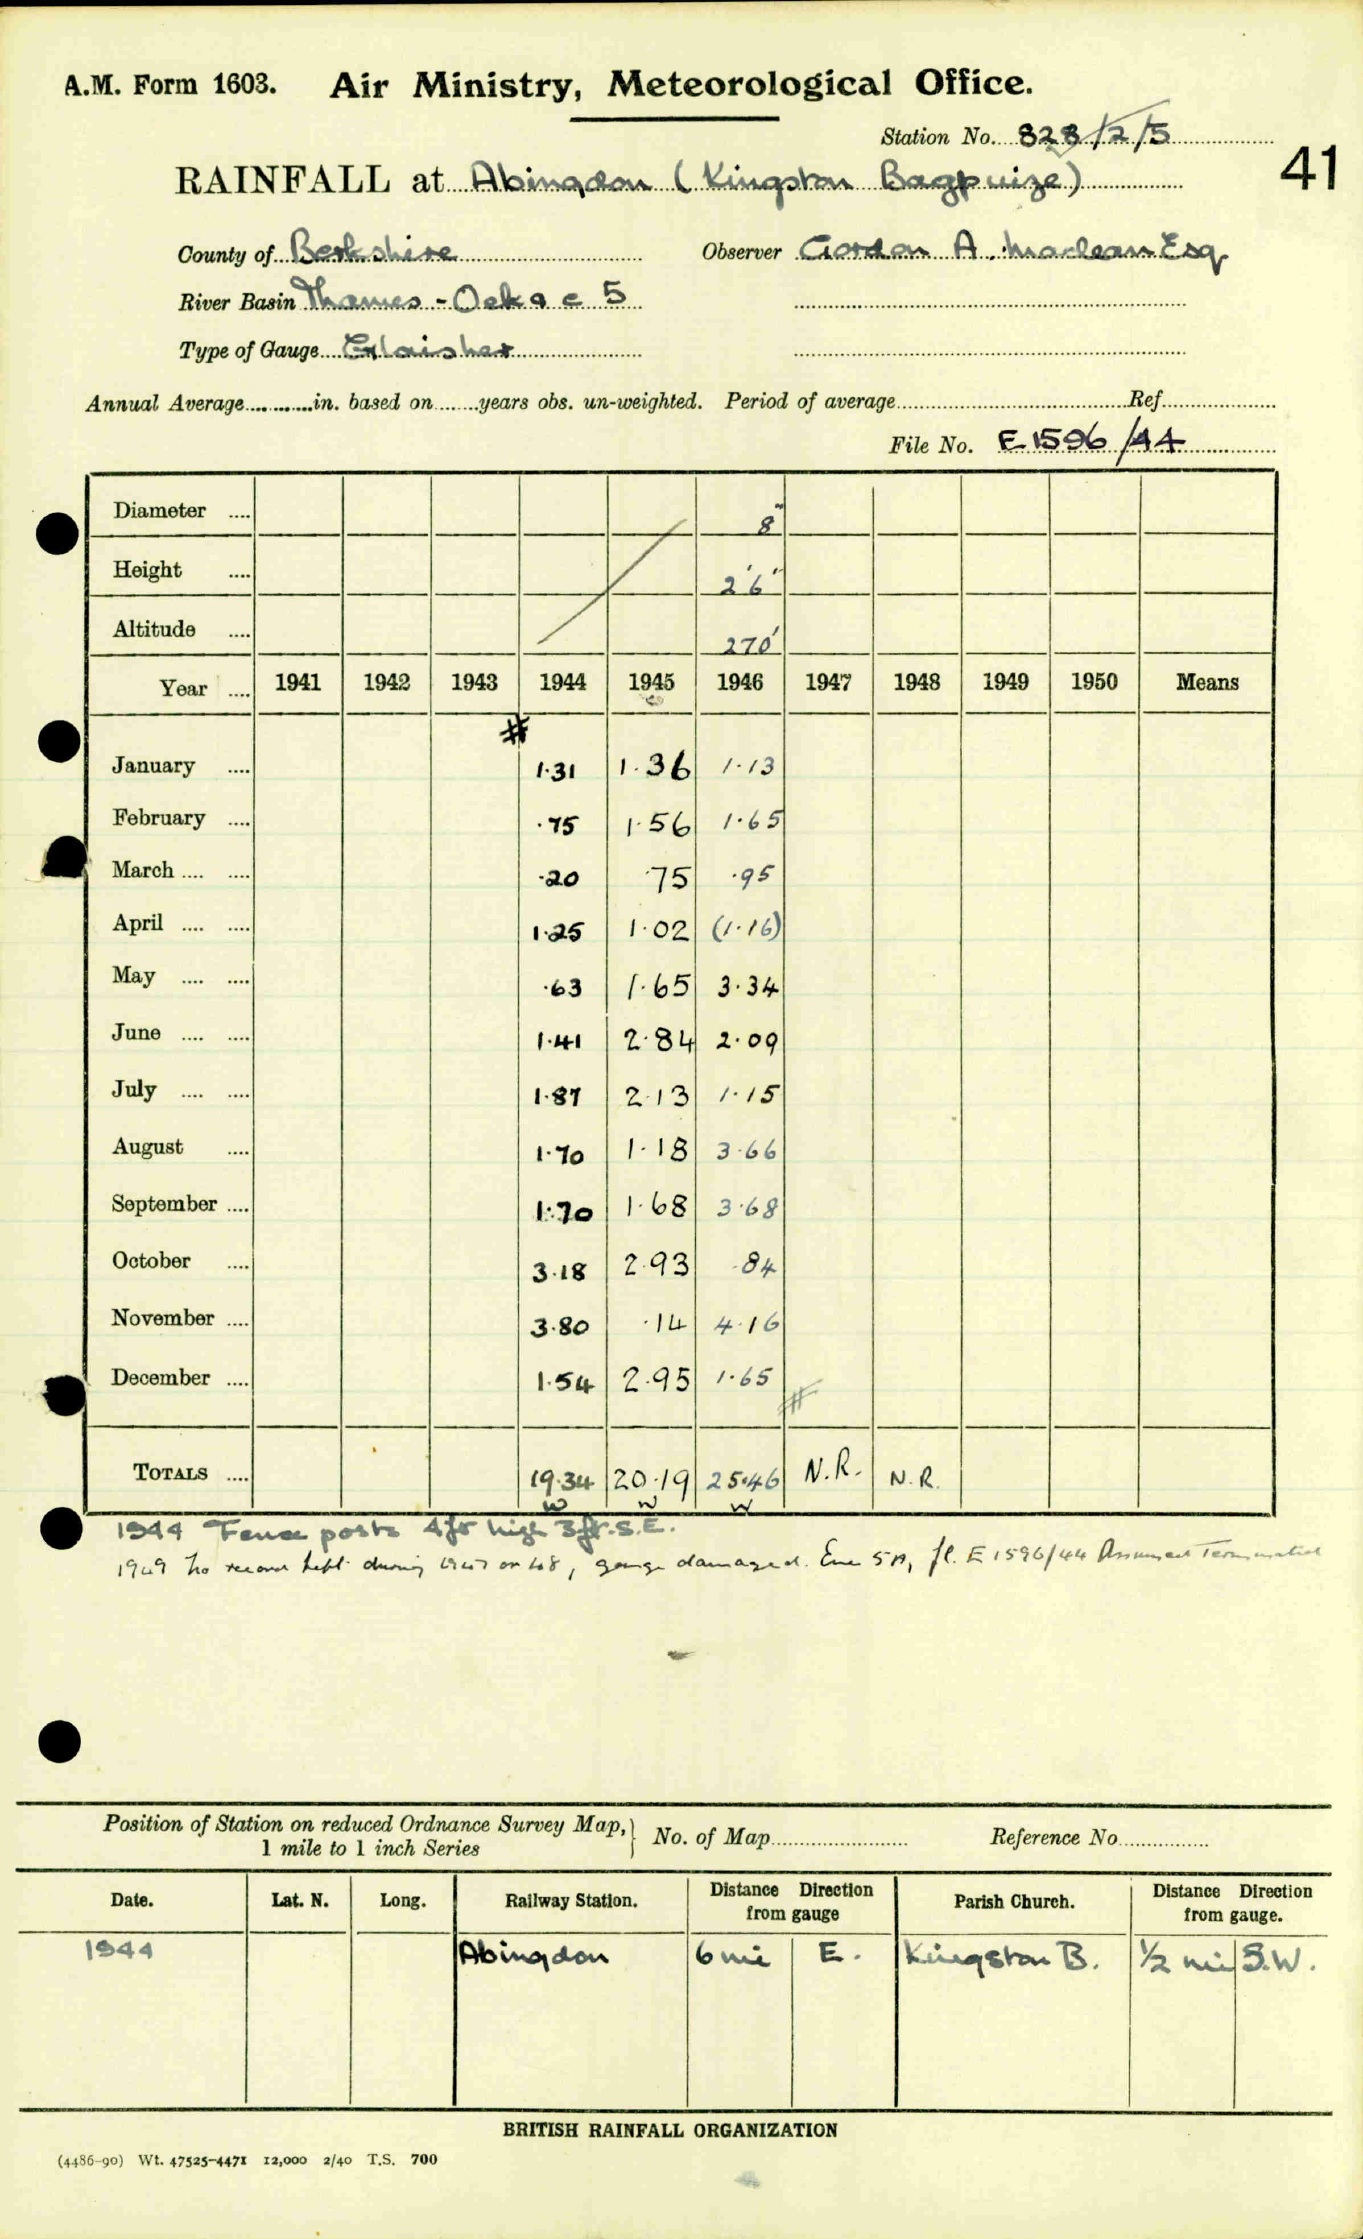 A.M. Form 1603. Air Ministry, Meteorological Office.
Station No. 828/2/5
41
RAINFALL at Abingdon (Kingston Bagpuize)
County of Berkshire Observer Gordon A. Maclean Esq
River Basin Thames - Ock 5
Type of Gauge Glaisher
Annual Average............in. based on........years obs. un-weighted. Period of average.......... Ref..........
File No. E 1596/44
Diameter .... 8"
Height .... 2'6"
Altitude .... 270'
Year .... 1941 1942 1943 1944 1945 1946 1947 1948 1949 1950 Means
#
January .... 1.31 1.36 1.13
February .... .75 1.56 1.65
March .... .... .20 .75 .95
April .... .... 1.25 1.02 (1.16)
May .... .... .63 1.65 3.34
June .... .... 1.41 2.84 2.09
July .... .... 1.87 2.13 1.15
August .... 1.70 1.18 3.66
September .... 1.70 1.68 3.68
October .... 3.18 2.93 .84
November .... 3.80 .14 4.16
December .... 1.54 2.95 1.65
#
TOTALS .... 19.34 20.19 25.46 N.R. N.R.
w w w
1944 Fence posts 4ft high 3ft. S.E.
1949 No record kept during 1947 or 48, gauge damaged. 5A, fl. E 1596/44 Assumed Terminated
Position of Station on reduced Ordnance Survey Map, 1 mile to 1 inch Series No. of Map.......... Reference No..........
Date. Lat. N. Long. Railway Station. Distance Direction from gauge Parish Church. Distance Direction from gauge.
1944 Abingdon 6 mi E. Kingston B. 1/2 mi S.W.
BRITISH RAINFALL ORGANIZATION
(4486-90) Wt. 47525-4471 12,000 2/40 T.S. 700